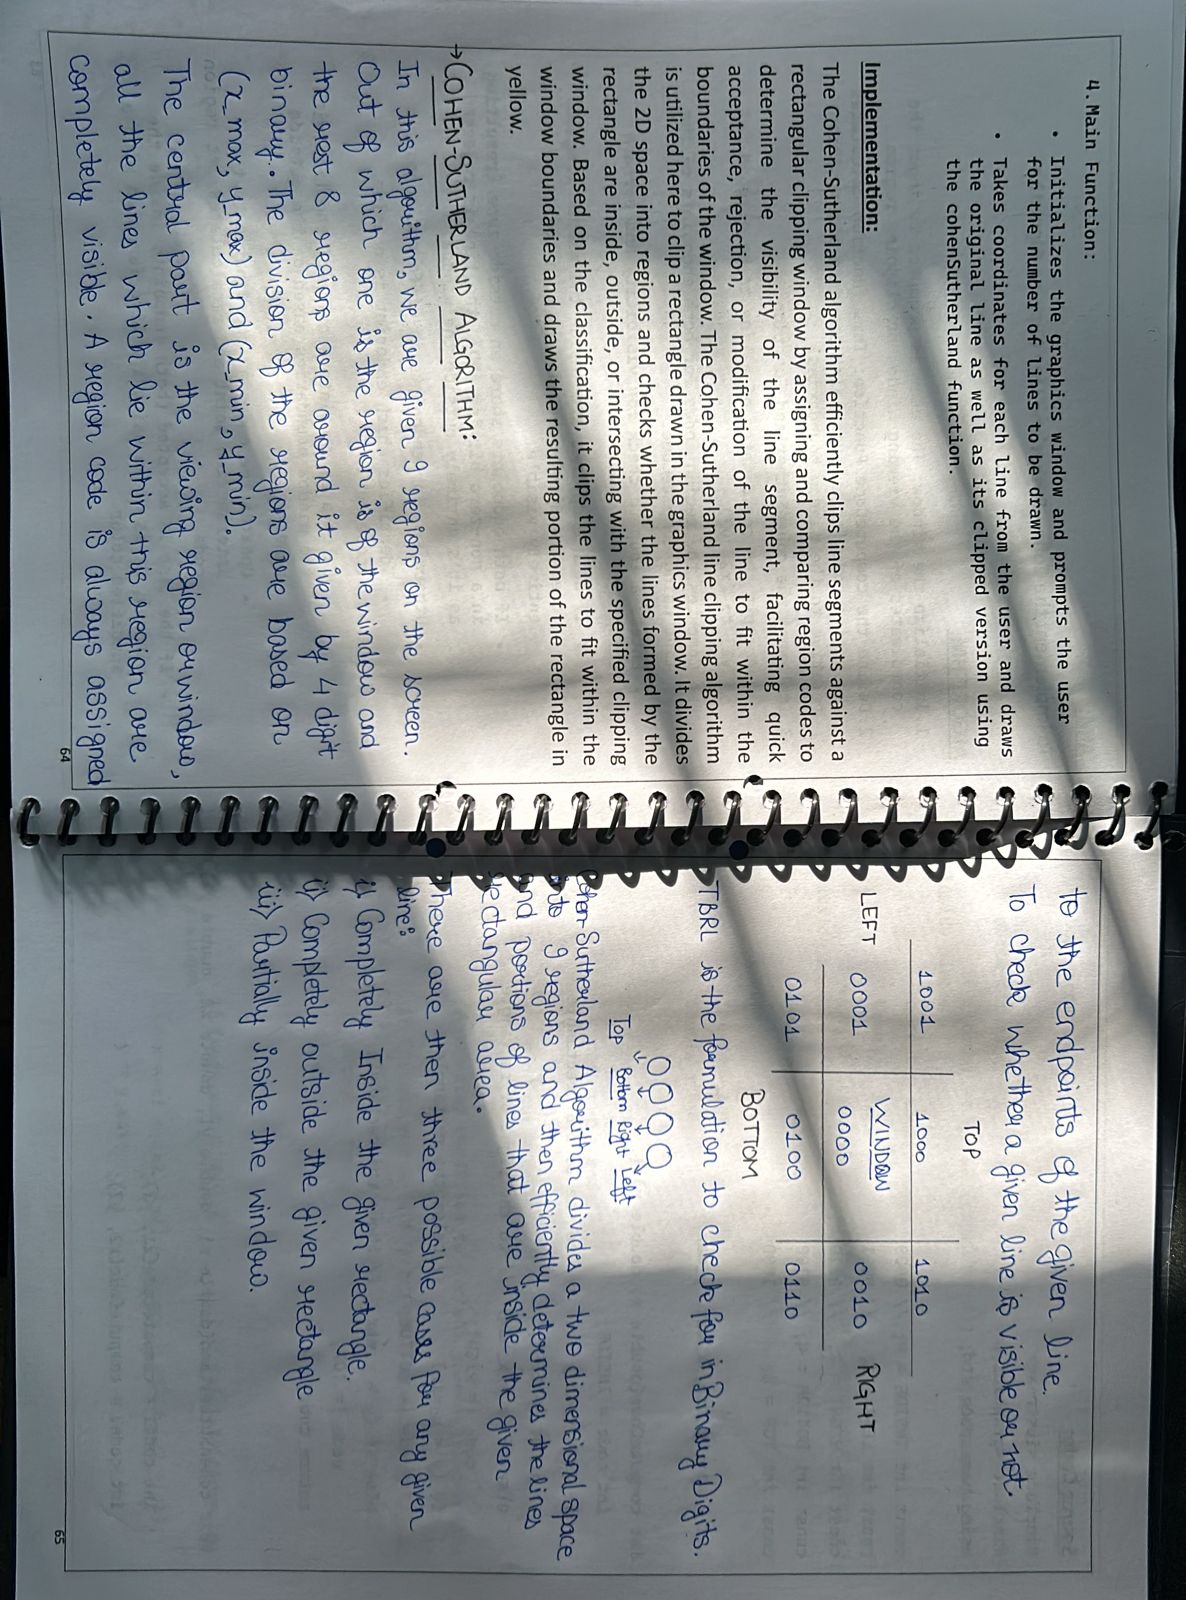 4. Main Function:
• Initializes the graphics window and prompts the user
for the number of lines to be drawn.
• Takes coordinates for each line from the user and draws
the original line as well as its clipped version using
the cohenSutherland function.
Implementation:
The Cohen-Sutherland algorithm efficiently clips line segments against a
rectangular clipping window by assigning and comparing region codes to
determine the visibility of the line segment, facilitating quick
acceptance, rejection, or modification of the line to fit within the
boundaries of the window. The Cohen-Sutherland line clipping algorithm
is utilized here to clip a rectangle drawn in the graphics window. It divides
the 2D space into regions and checks whether the lines formed by the
rectangle are inside, outside, or intersecting with the specified clipping
window. Based on the classification, it clips the lines to fit within the
window boundaries and draws the resulting portion of the rectangle in
yellow.
→ COHEN-SUTHERLAND ALGORITHM:
In this algorithm, we are given 9 regions on the screen.
Out of which one is the region is of the window and
the rest 8 regions are around it given by 4 digit
binary. The division of the regions are based on
(x_max, y_max) and (x_min, y_min).
The central part is the viewing region or window,
all the lines which lie within this region are
completely visible. A region code is always assigned
64
to the endpoints of the given line.
To check whether a given line is visible or not.
TOP
1001 1000 1010
LEFT 0001 WINDOW 0010 RIGHT
0000
0101 0100 0110
BOTTOM
TBRL is the formulation to check for in Binary Digits.
Top Bottom Right Left
Cohen-Sutherland Algorithm divides a two dimensional space
into 9 regions and then efficiently determines the lines
and portions of lines that are inside the given
rectangular area.
There are then three possible cases for any given
line:
i) Completely Inside the given rectangle.
ii) Completely outside the given rectangle
iii) Partially inside the window.
65